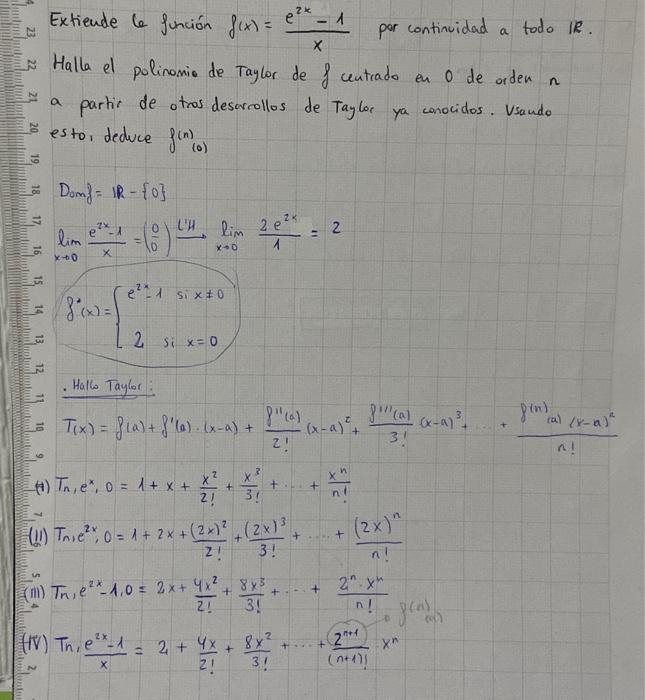 Extiende la función f(x) = (e^{2x} - 1)/x por continuidad a todo IR.
Halla el polinomio de Taylor de f centrado en 0 de orden n
a partir de otros desarrollos de Taylor ya conocidos. Usando
esto, deduce f^{(n)}(0)
Dom f = IR - {0}
lim_{x→0} (e^{2x} - 1)/x = (0/0) L'H → lim_{x→0} 2e^{2x}/1 = 2
f*(x) = { e^{2x} - 1 si x ≠ 0
2 si x = 0
. Hallo Taylor:
T(x) = f(a) + f'(a) · (x-a) + f''(a)/2! (x-a)^2 + f'''(a)/3! (x-a)^3 + ... + f^{(n)}(a) (x-a)^n/n!
(I) Tn, e^x, 0 = 1 + x + x^2/2! + x^3/3! + ... + x^n/n!
(II) Tn, e^{2x}, 0 = 1 + 2x + (2x)^2/2! + (2x)^3/3! + .... + (2x)^n/n!
(III) Tn, e^{2x} - 1, 0 = 2x + 4x^2/2! + 8x^3/3! + ... + 2^n · x^n/n!
f^{(n)}(0)
(IV) Tn, (e^{2x} - 1)/x = 2 + 4x/2! + 8x^2/3! + ... + 2^{n+1}/(n+1)! · x^n
23
22
21
20
19
18
17
16
15
14
13
12
11
10
9
7
5
4
2